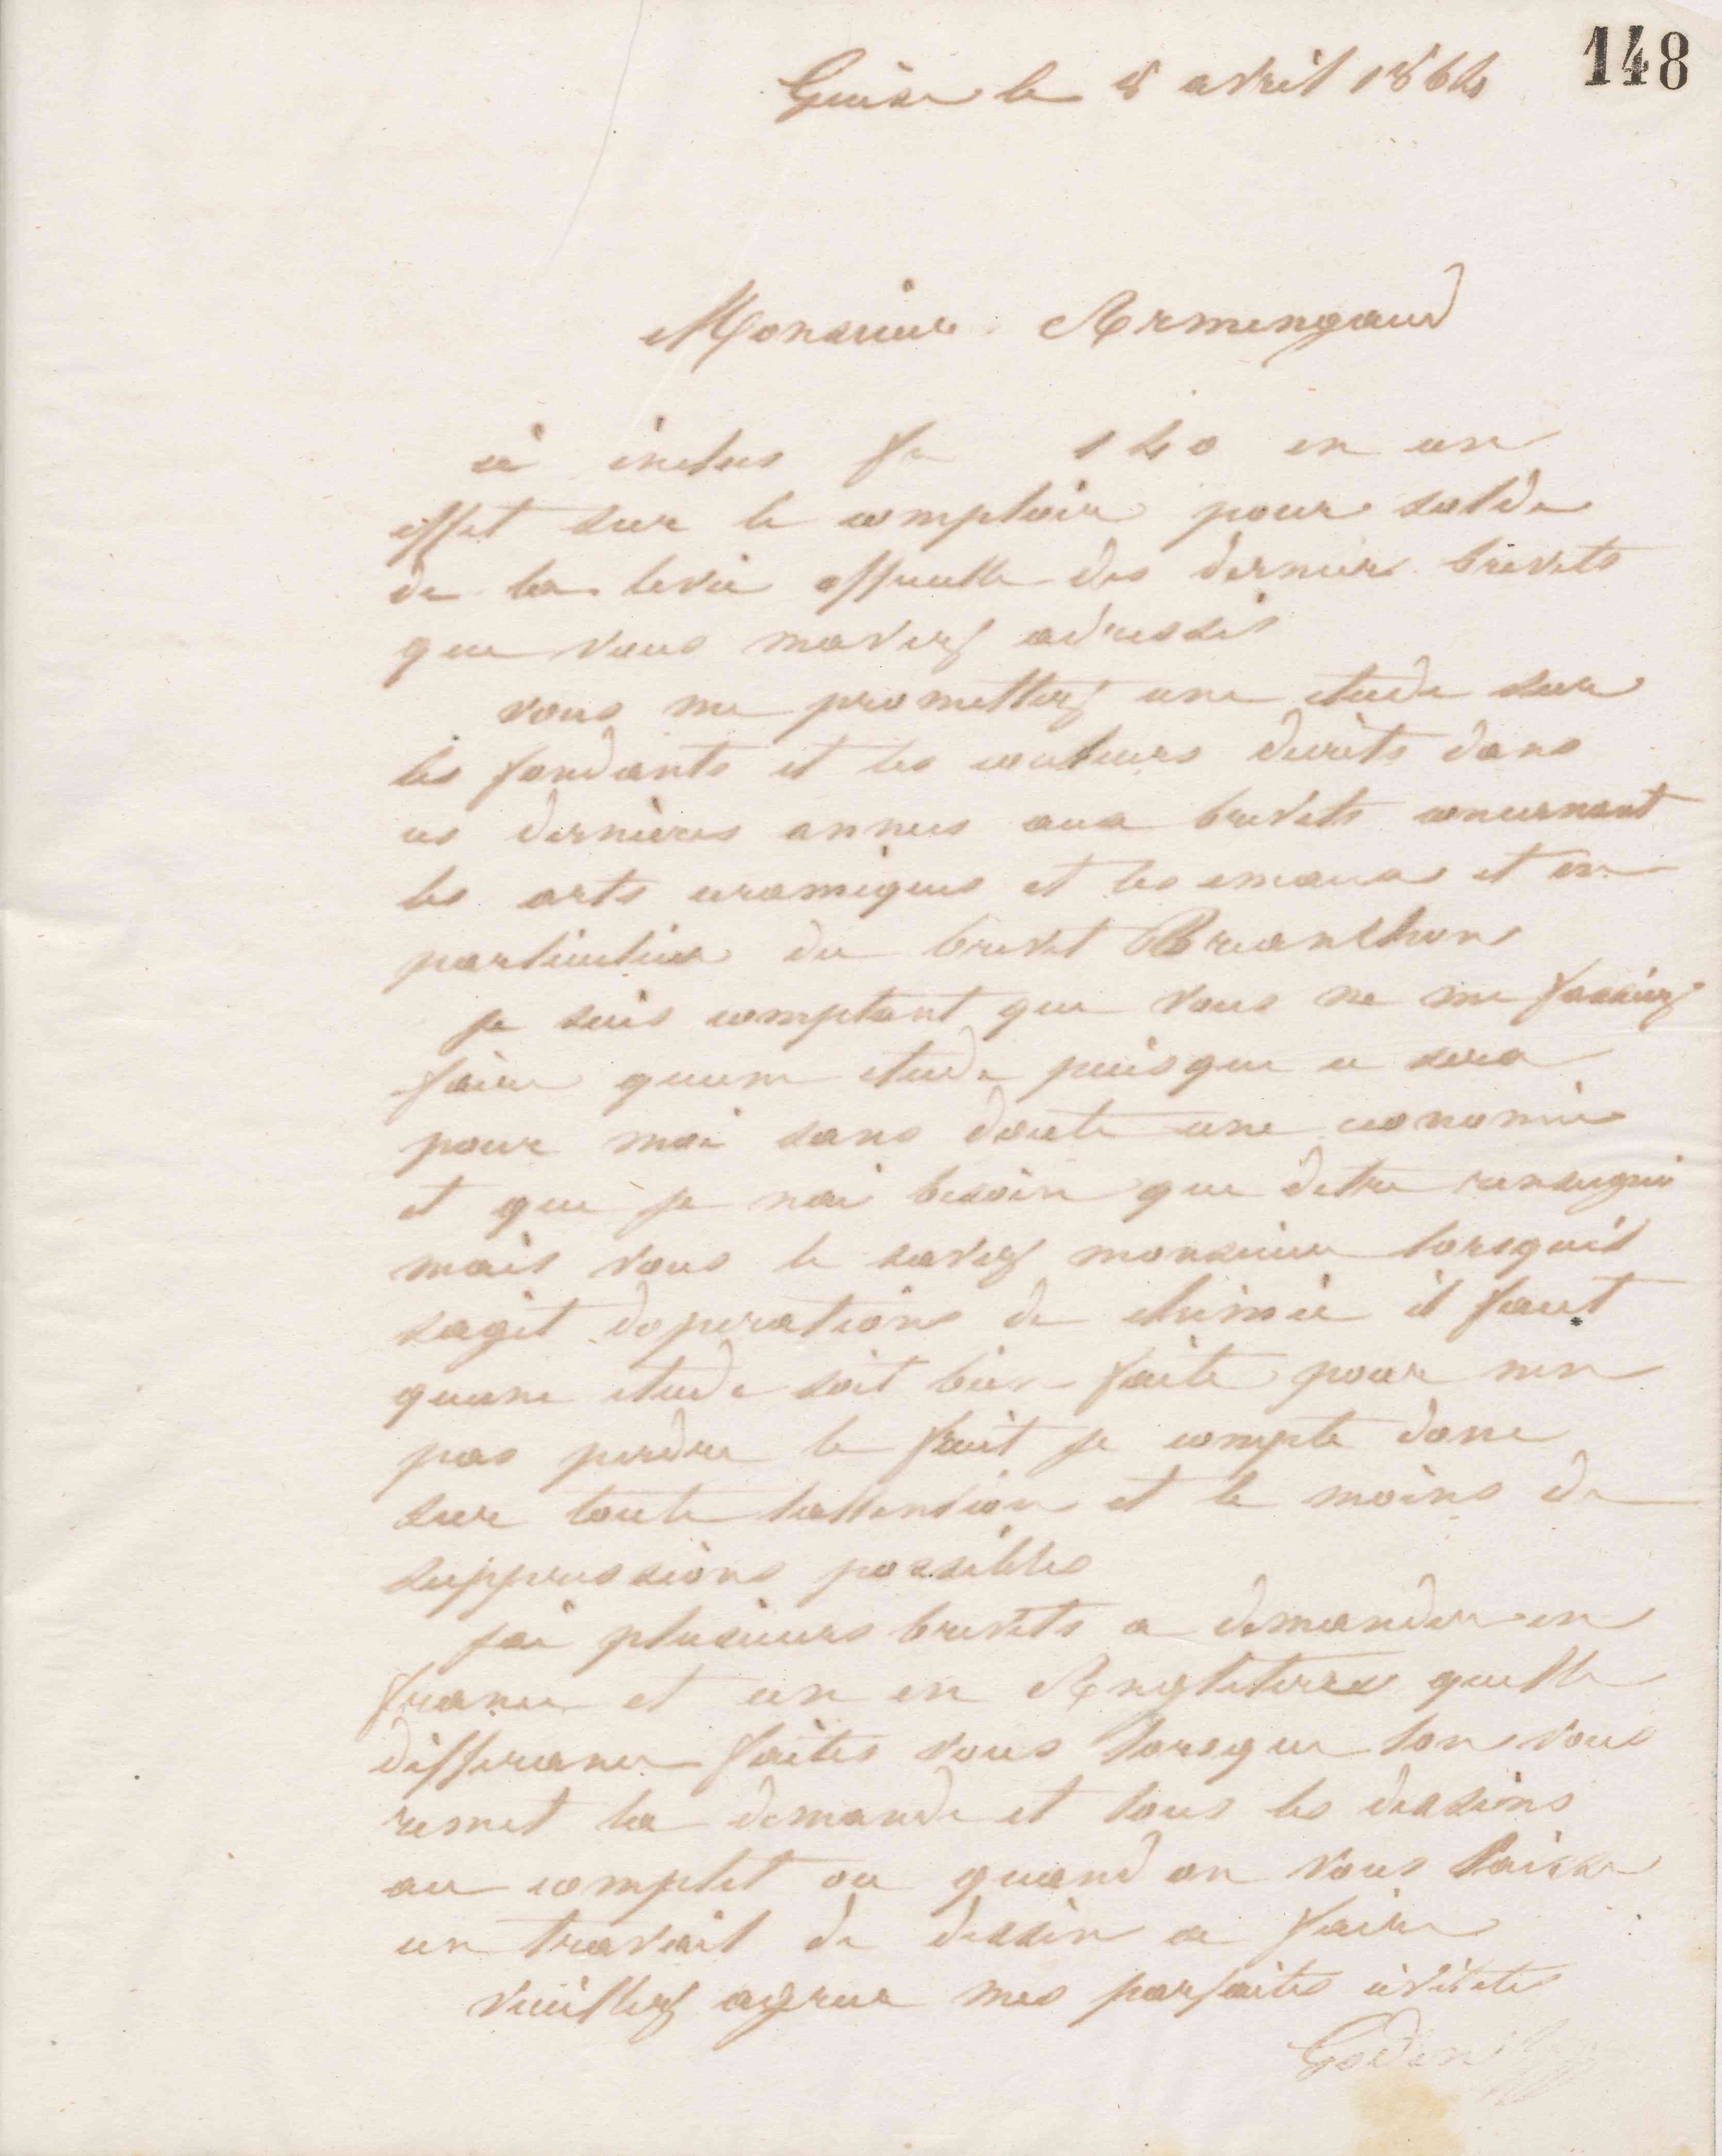 148
Guise le 8 avril 1864
Monsieur Armengaud
ci inclus fr 140 en un
effet sur le comptoir pour solde
de la levée officielle des derniers brevets
que vous mavez adressés
vous me promettez une etude sur
les fondants et les couleurs decrits dans
ces dernières annees aux brevets concernant
les arts ceramiques et les emaux et en
particulier du brevet Brianchon
je suis comptant que vous ne me fassiez
faire quune etude puisque ce sera
pour moi sans doute une economie
et que je nai besoin que detre renseigné
mais vous le savez monsieur lorsquil
sagit doperations de chimie il faut
quune etude soit bien faite pour nen
pas perdre le fruit je compte donc
sur toute lattention et le moins de
suppressions possibles
jai plusieurs brevets a demander en
france et un en Angleterre quelle
difference faites vous lorsque lon vous
remet la demande et tous les dessins
au complet ou quand on vous laisse
un travail de dessin a faire
veuillez agreer mes parfaites civilités
Godin